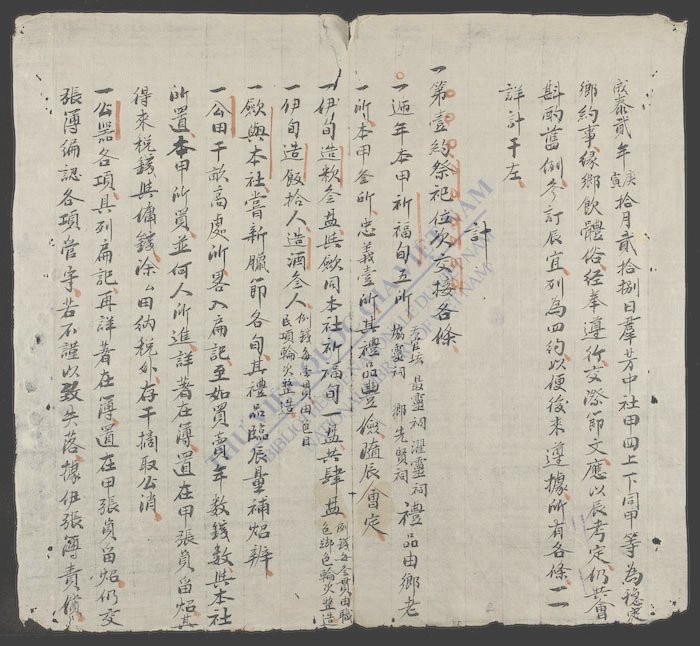 成泰貳年庚寅拾月貳拾捌日羣芳中社甲四上下同甲等為穏定
鄉約事緣鄉飲體俗经奉遵行交際節文應以辰考定仍共會
斟酌舊例参訂辰宜列為四約以便後来遵據所有各條一一
詳計于左
計
一第壹約祭祀位次交接各條
一遞年本甲祈福旬五所 最靈祠 濯靈祠 協靈祠 鄉先賢祠 禮品由鄉老
一所本甲叁所忠義壹所其禮品豊儉隨辰會定
一伊旬造粢叁盘與㰸同本社祈福旬一盘共肆盘 例錢每 由職色鄉色輪次整造
一伊旬造飯拾人造酒叁人 例錢每 民項輪次整造
一㰸與本社嘗新臘節各旬其禮品臨辰量補炤辨
一公田干畝高處所畧入扁記至如買賣年数錢数與本社
所置本甲所買並何人所進詳著在簿置在甲張員留炤其
得来税錢與傭錢除公田納税外存干摘取公消
一公器各項具列扁記再詳著在簿置在甲張員留炤仍交
張簿編認各項管守若不謹以致失落據伊張簿責償
THƯ VIỆN QUỐC GIA VIỆT NAM